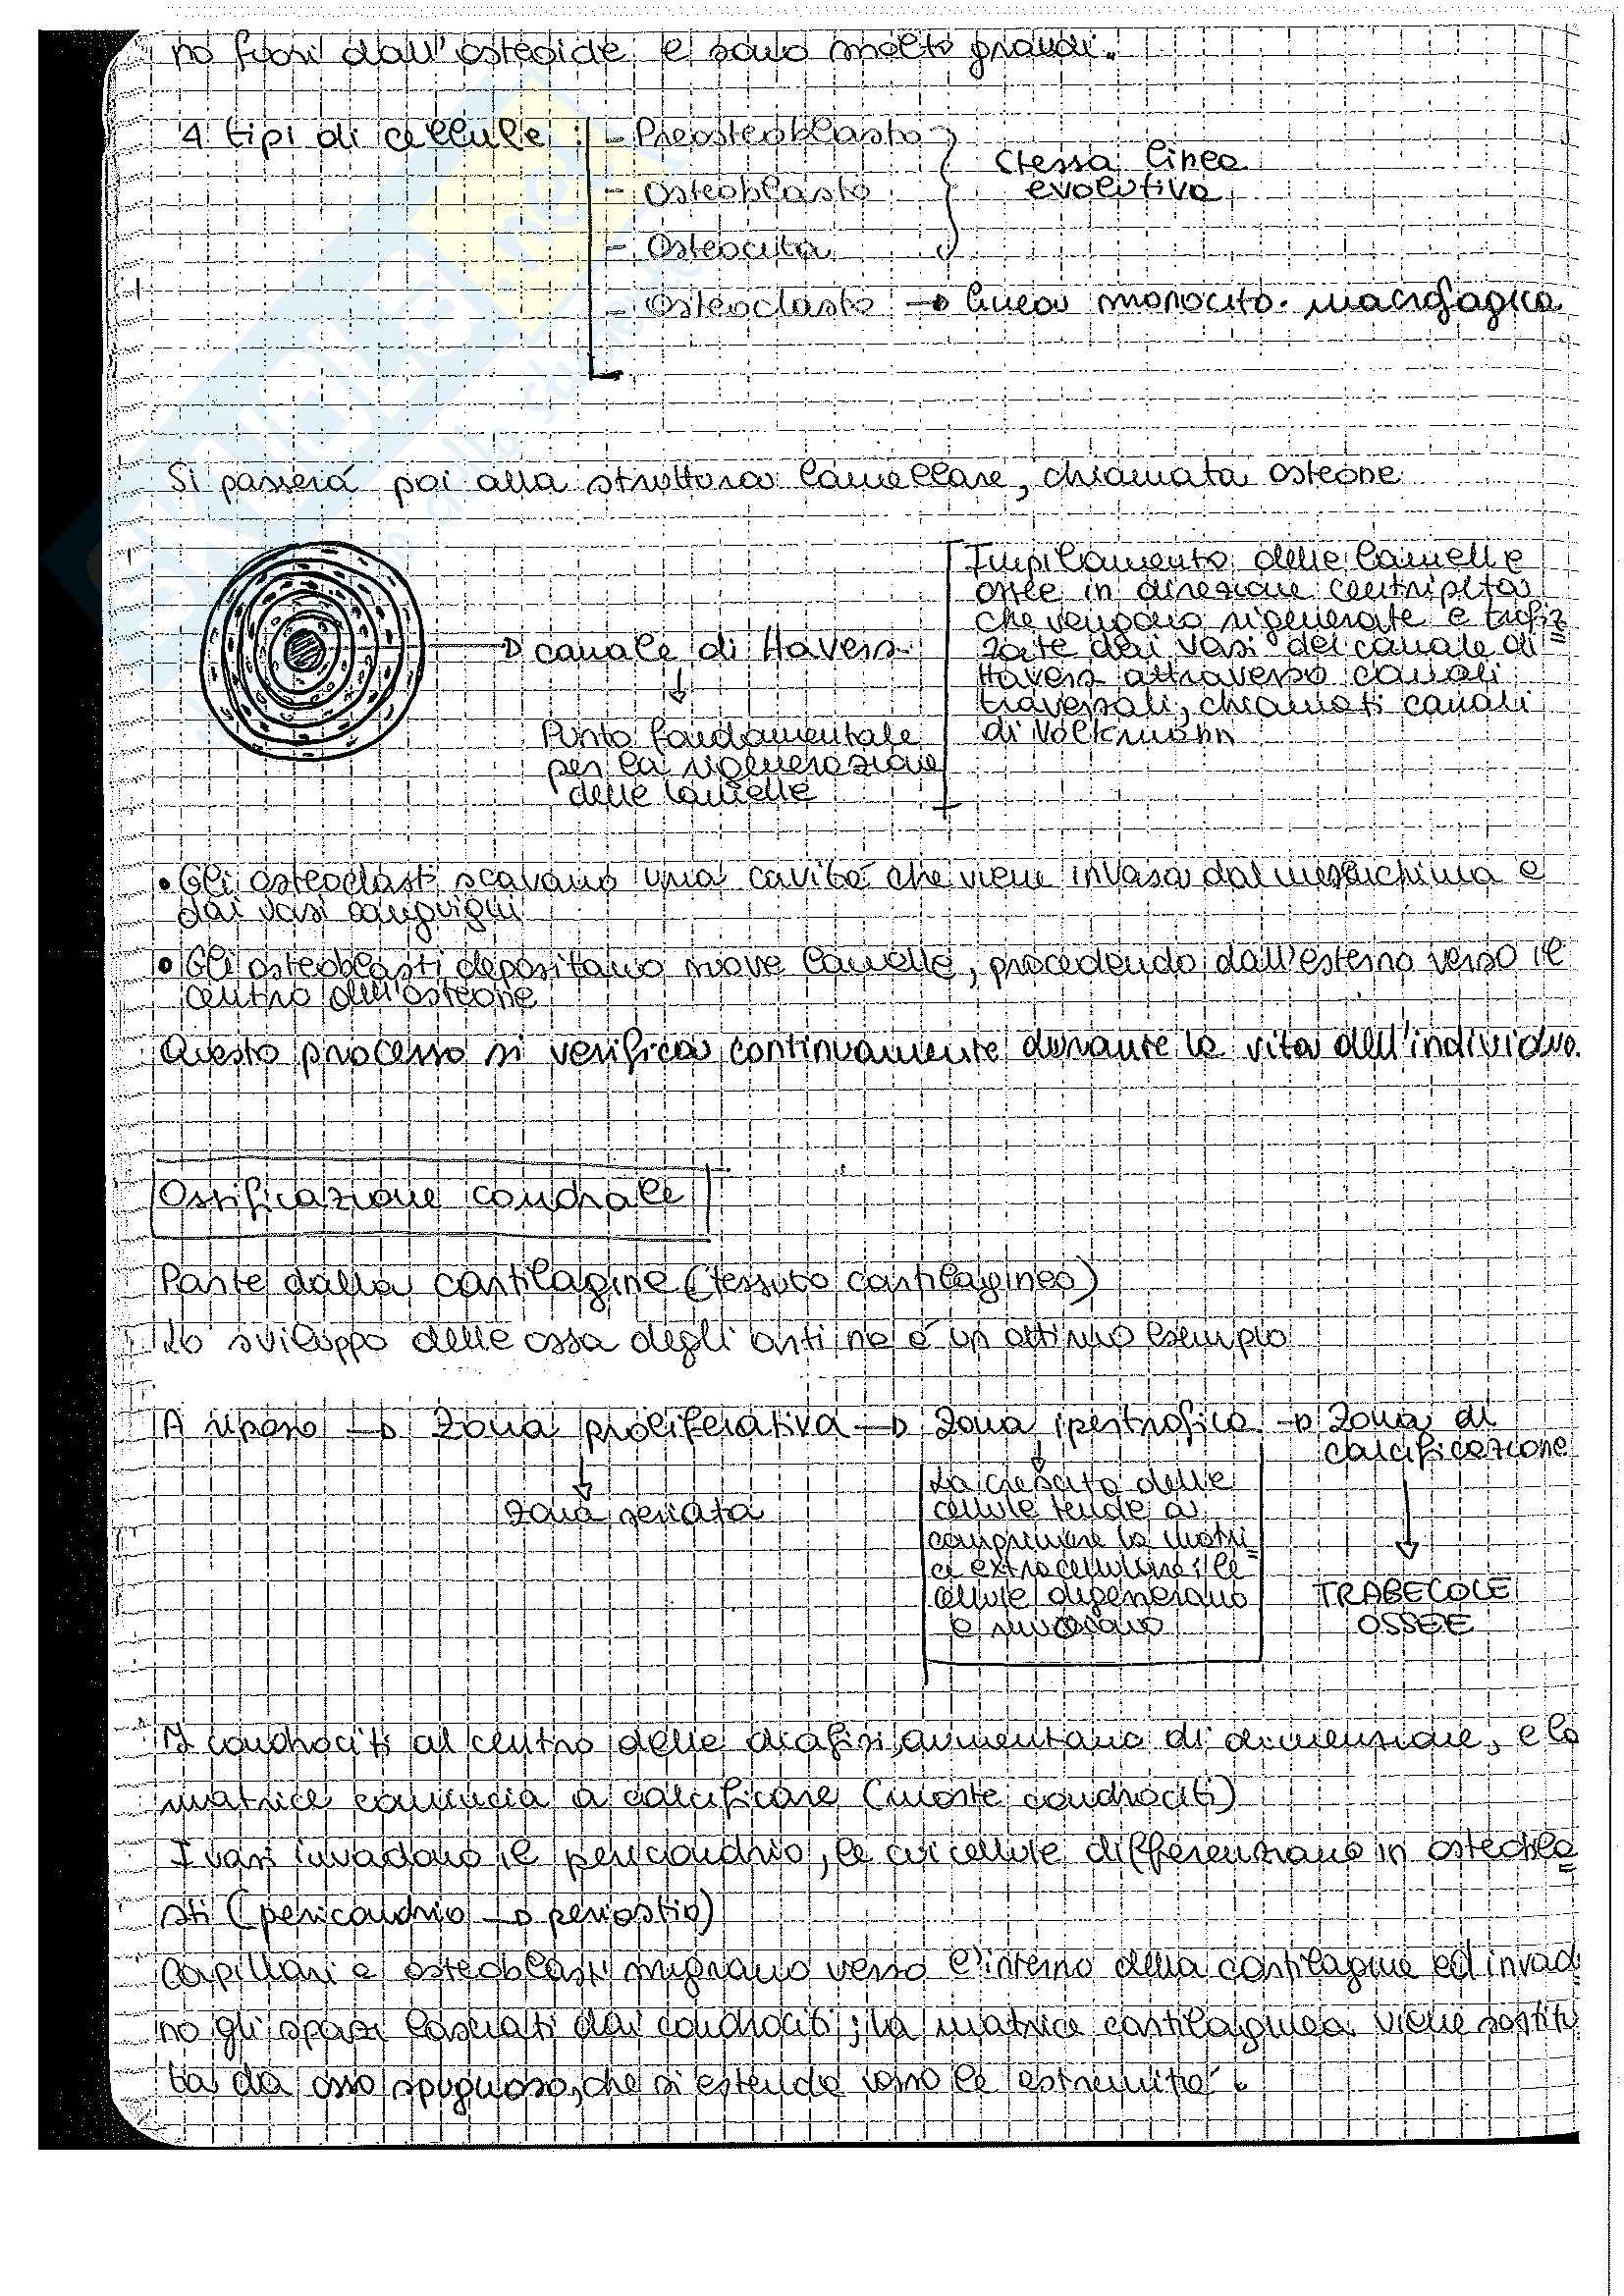 no fuori dall'osteoide e sono molto grandi.
4 tipi di cellule: - Preosteoblasto
- Osteoblasto
- Osteocita
Stessa linea
evolutiva
- Osteoclasto → linea monocito-macrofagica
Si passerà poi alla struttura lamellare, chiamata osteone
→ canale di Havers
↓
Punto fondamentale
per la rigenerazione
delle lamelle
Impilamento delle lamelle
ossee in direzione centripeta
che vengono rigenerate e trofiz=
zate dai vasi del canale di
Havers attraverso canali
traversali, chiamati canali
di Volkmann
• Gli osteoclasti scavano una cavità che viene invasa dal mesenchima e
dai vasi sanguigni
• Gli osteoblasti depositano nuove lamelle, procedendo dall'esterno verso il
centro dell'osteone
Questo processo si verifica continuamente durante la vita dell'individuo.
Ossificazione condrale
Parte dalla cartilagine (tessuto cartilagineo)
Lo sviluppo delle ossa degli arti ne è un ottimo esempio
A riposo → Zona proliferativa → Zona ipertrofica → Zona di
calcificazione
↓
Zona seriata
↓
La crescita delle
cellule tende a
comprimere la matri=
ce extracellulare; le
cellule degenerano
e muoiono
↓
TRABECOLE
OSSEE
I condrociti al centro delle diafisi aumentano di dimensione, e la
matrice comincia a calcificare (morte condrociti)
I vasi invadono il pericondrio, le cui cellule differenziano in osteobla=
sti (pericondrio → periostio)
Capillari e osteoblasti migrano verso l'interno della cartilagine ed invad
no gli spazi lasciati dai condrociti; la matrice cartilaginea viene sostitu
ta da osso spugnoso, che si estende verso le estremità.